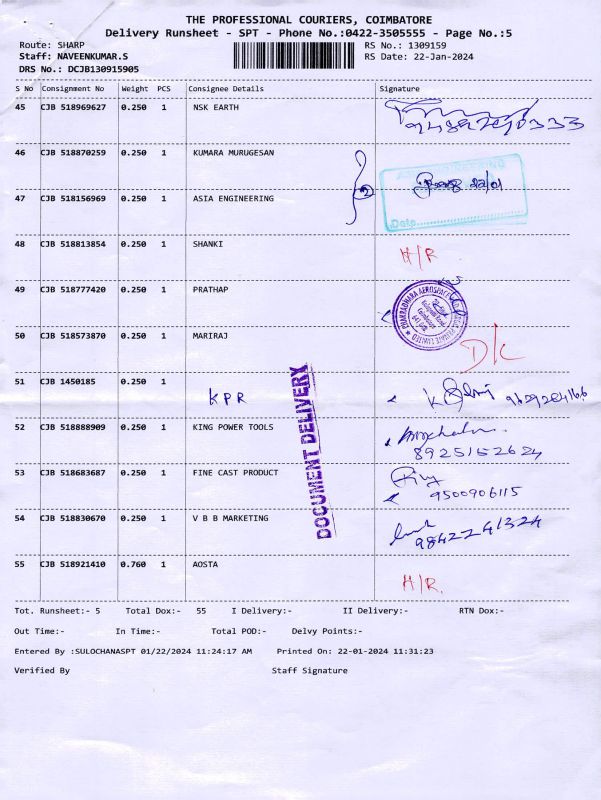 THE PROFESSIONAL COURIERS, COIMBATORE
Delivery Runsheet - SPT - Phone No.:0422-3505555 - Page No.:5
Route: SHARP RS No.: 1309159
Staff: NAVEENKUMAR.S RS Date: 22-Jan-2024
DRS No.: DCJB130915905
S No Consignment No Weight PCS Consignee Details Signature
45 CJB 518969627 0.250 1 NSK EARTH
46 CJB 518870259 0.250 1 KUMARA MURUGESAN
22/01
47 CJB 518156969 0.250 1 ASIA ENGINEERING
Date
48 CJB 518813854 0.250 1 SHANKI H/R
49 CJB 518777420 0.250 1 PRATHAP
50 CJB 518573870 0.250 1 MARIRAJ D/C
51 CJB 1450185 0.250 1 KPR
DOCUMENT DELIVERY
52 CJB 518888909 0.250 1 KING POWER TOOLS
8925152624
53 CJB 518683687 0.250 1 FINE CAST PRODUCT
9500906115
54 CJB 518830670 0.250 1 V B B MARKETING
9842241324
55 CJB 518921410 0.760 1 AOSTA H/R.
Tot. Runsheet:- 5 Total Dox:- 55 I Delivery:- II Delivery:- RTN Dox:-
Out Time:- In Time:- Total POD:- Delvy Points:-
Entered By :SULOCHANASPT 01/22/2024 11:24:17 AM Printed On: 22-01-2024 11:31:23
Verified By Staff Signature